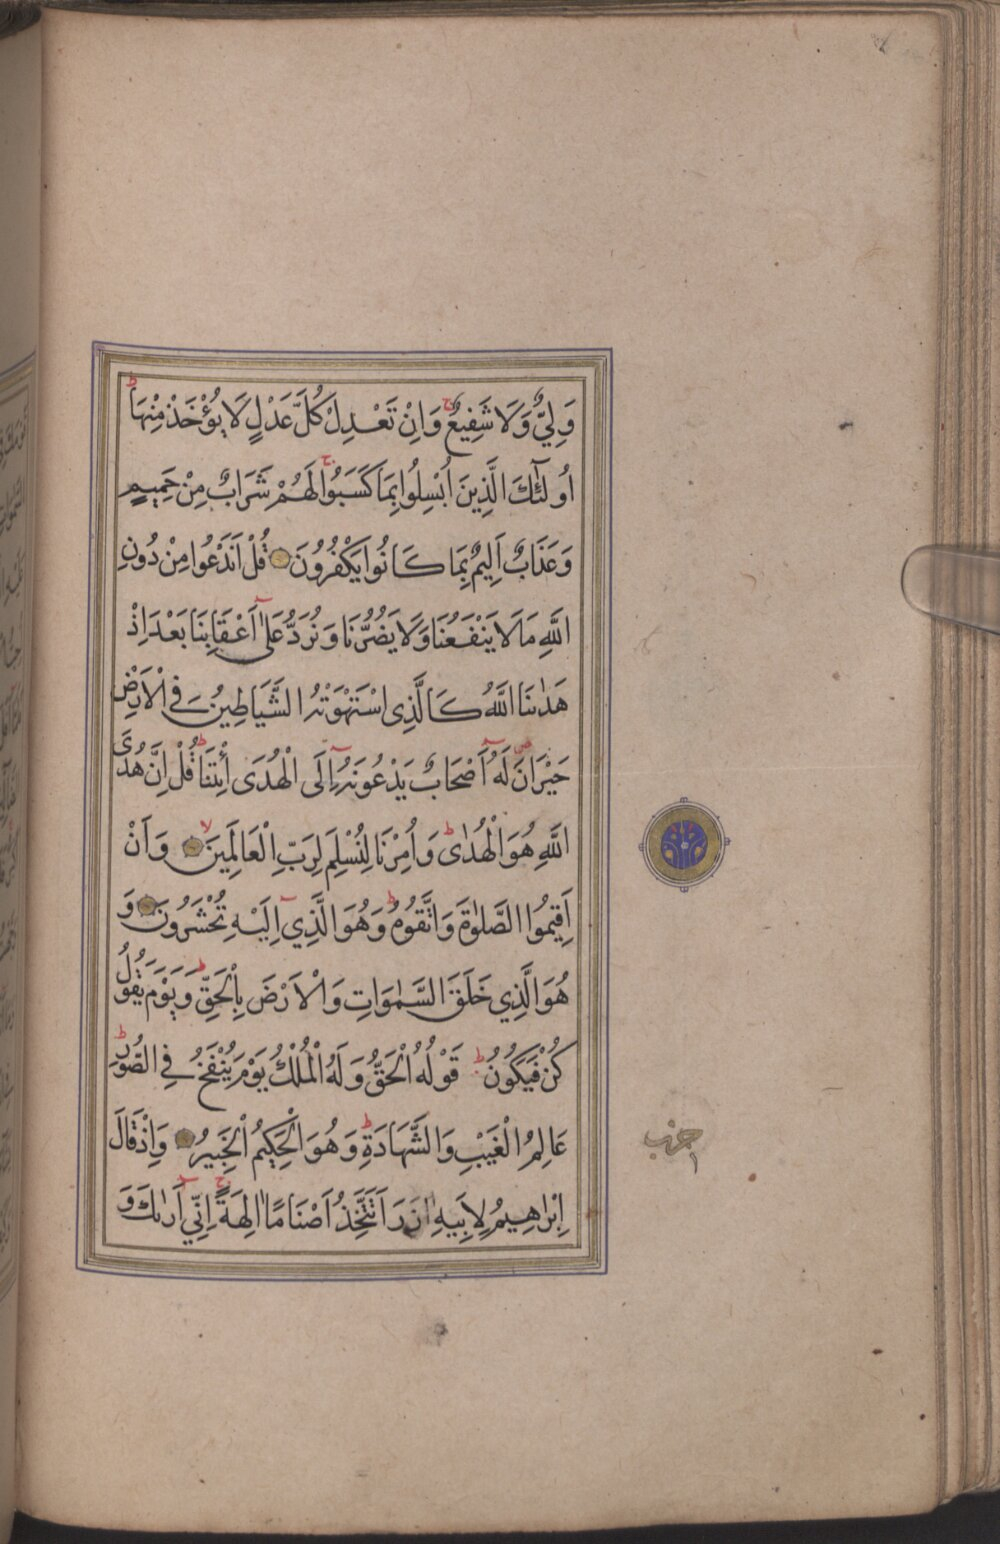 وَلِيٌّ وَلَا شَفِيعٌ وَاِنْ تَعْدِلْ كُلَّ عَدْلٍ لَا يُؤْخَذْ مِنْهَا ط
اُولٰٓئِكَ الَّذِينَ اُبْسِلُوا بِمَا كَسَبُوا ج لَهُمْ شَرَابٌ مِنْ حَمِيمٍ
وَعَذَابٌ اَلِيمٌ بِمَا كَانُوا يَكْفُرُونَ قُلْ اَنَدْعُوا مِنْ دُونِ
اللَّهِ مَا لَا يَنْفَعُنَا وَلَا يَضُرُّنَا وَنُرَدُّ عَلٰٓى اَعْقَابِنَا بَعْدَ اِذْ
هَدٰىنَا اللَّهُ كَالَّذِى اسْتَهْوَتْهُ الشَّيَاطِينُ فِي الْاَرْضِ
حَيْرَانَ ص لَهُٓ اَصْحَابٌ يَدْعُونَهُٓ اِلَى الْهُدَى ائْتِنَا ط قُلْ اِنَّ هُدَى
اللَّهِ هُوَ الْهُدٰى ط وَاُمِرْنَا لِنُسْلِمَ لِرَبِّ الْعَالَمِينَ لا وَاَنْ
اَقِيمُوا الصَّلٰوةَ وَاتَّقُوهُ ط وَهُوَ الَّذِيٓ اِلَيْهِ تُحْشَرُونَ وَ
هُوَ الَّذِي خَلَقَ السَّمٰوَاتِ وَالْاَرْضَ بِالْحَقِّ ط وَيَوْمَ يَقُولُ
كُنْ فَيَكُونُ ط قَوْلُهُ الْحَقُّ وَلَهُ الْمُلْكُ يَوْمَ يُنْفَخُ فِي الصُّورِ ط
عَالِمُ الْغَيْبِ وَالشَّهَادَةِ ط وَهُوَ الْحَكِيمُ الْخَبِيرُ وَاِذْ قَالَ
اِبْرٰهِيمُ لِاَبِيهِ اٰزَرَ اَتَتَّخِذُ اَصْنَامًا اٰلِهَةً ج اِنِّيٓ اَرٰىكَ وَ
حزب
١